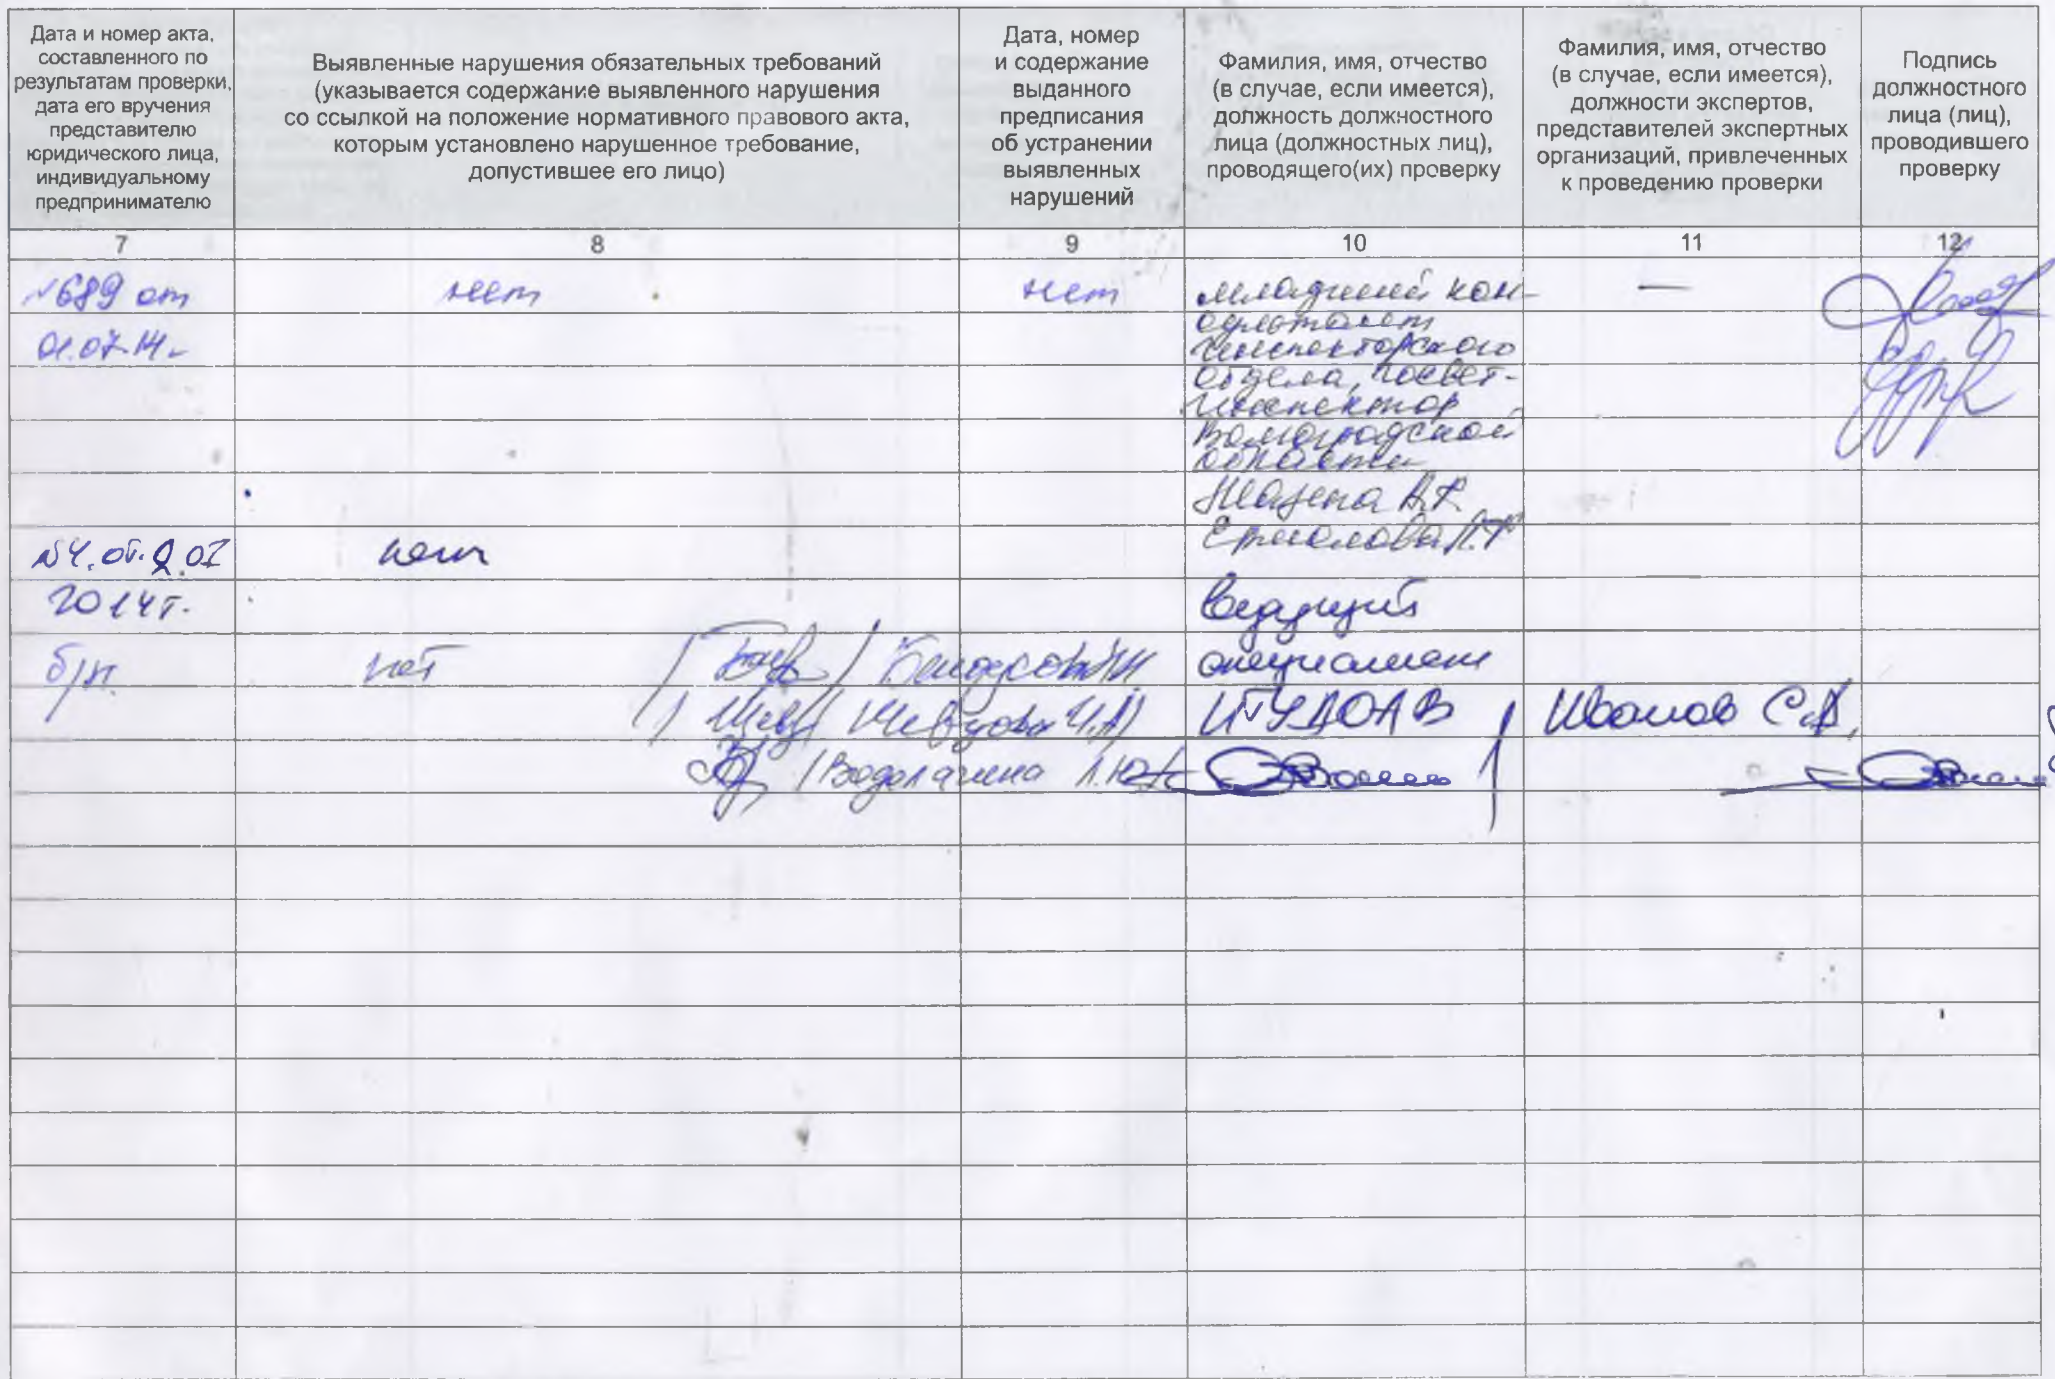 Дата и номер акта,
составленного по
результатам проверки,
дата его вручения
представителю
юридического лица,
индивидуальному
предпринимателю
Выявленные нарушения обязательных требований
(указывается содержание выявленного нарушения
со ссылкой на положение нормативного правового акта,
которым установлено нарушенное требование,
допустившее его лицо)
Дата, номер
и содержание
выданного
предписания
об устранении
выявленных
нарушений
Фамилия, имя, отчество
(в случае, если имеется),
должность должностного
лица (должностных лиц),
проводящего(их) проверку
Фамилия, имя, отчество
(в случае, если имеется),
должности экспертов,
представителей экспертных
организаций, привлеченных
к проведению проверки
Подпись
должностного
лица (лиц),
проводившего
проверку
7
8
9
10
11
12
№689 от
01.07.14г
нет
нет
младший кон-
сультант
инспекторского
отдела, госвет-
инспектор
Волгоградской
области
Ермолова
—
2014г.
нет
ведущий
специалист
б/н.
нет
Шевцова И.А)
Водолагина Л.Ю
Иванов С.А.